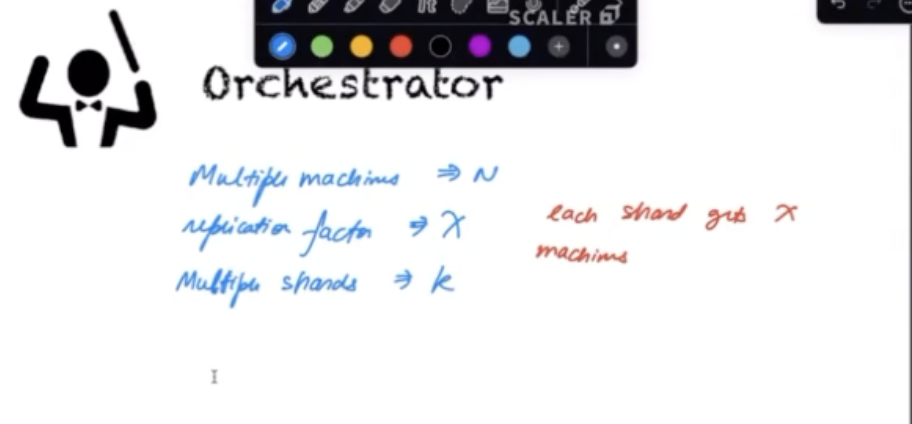 SCALER
Orchestrator
Multiple machines ⇒ N
replication factor ⇒ X
Multiple shards ⇒ k
each shard gets X
machines